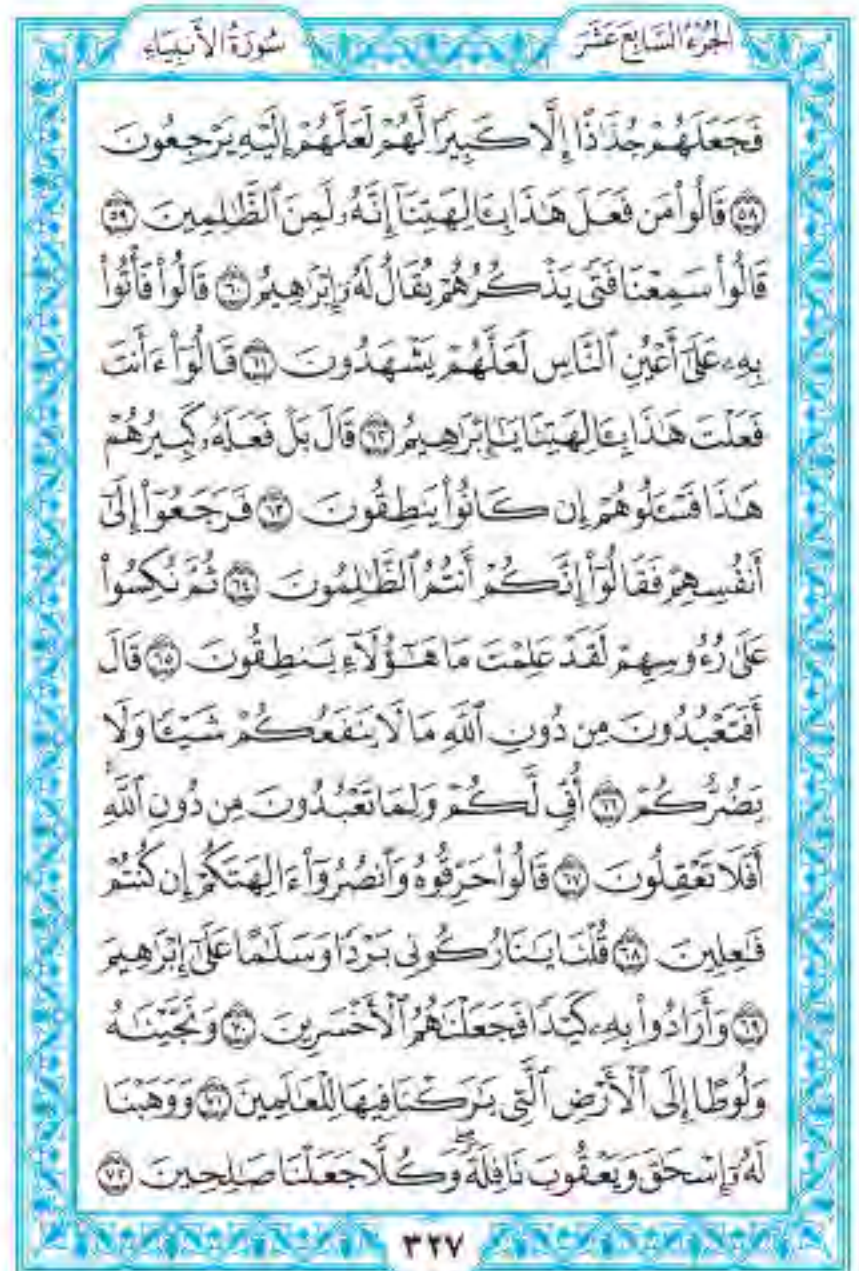 الجُزْءُ السَّابِعَ عَشَرَ
سُورَةُ الأَنبِيَاءِ
فَجَعَلَهُمْ جُذَٰذًا إِلَّا كَبِيرًا لَّهُمْ لَعَلَّهُمْ إِلَيْهِ يَرْجِعُونَ
﴿٥٨﴾ قَالُوا۟ مَن فَعَلَ هَٰذَا بِـَٔالِهَتِنَآ إِنَّهُۥ لَمِنَ ٱلظَّٰلِمِينَ ﴿٥٩﴾
قَالُوا۟ سَمِعْنَا فَتًى يَذْكُرُهُمْ يُقَالُ لَهُۥٓ إِبْرَٰهِيمُ ﴿٦٠﴾ قَالُوا۟ فَأْتُوا۟
بِهِۦ عَلَىٰٓ أَعْيُنِ ٱلنَّاسِ لَعَلَّهُمْ يَشْهَدُونَ ﴿٦١﴾ قَالُوٓا۟ ءَأَنتَ
فَعَلْتَ هَٰذَا بِـَٔالِهَتِنَا يَٰٓإِبْرَٰهِيمُ ﴿٦٢﴾ قَالَ بَلْ فَعَلَهُۥ كَبِيرُهُمْ
هَٰذَا فَسْـَٔلُوهُمْ إِن كَانُوا۟ يَنطِقُونَ ﴿٦٣﴾ فَرَجَعُوٓا۟ إِلَىٰٓ
أَنفُسِهِمْ فَقَالُوٓا۟ إِنَّكُمْ أَنتُمُ ٱلظَّٰلِمُونَ ﴿٦٤﴾ ثُمَّ نُكِسُوا۟
عَلَىٰ رُءُوسِهِمْ لَقَدْ عَلِمْتَ مَا هَٰٓؤُلَآءِ يَنطِقُونَ ﴿٦٥﴾ قَالَ
أَفَتَعْبُدُونَ مِن دُونِ ٱللَّهِ مَا لَا يَنفَعُكُمْ شَيْـًٔا وَلَا
يَضُرُّكُمْ ﴿٦٦﴾ أُفٍّ لَّكُمْ وَلِمَا تَعْبُدُونَ مِن دُونِ ٱللَّهِ ۖ
أَفَلَا تَعْقِلُونَ ﴿٦٧﴾ قَالُوا۟ حَرِّقُوهُ وَٱنصُرُوٓا۟ ءَالِهَتَكُمْ إِن كُنتُمْ
فَٰعِلِينَ ﴿٦٨﴾ قُلْنَا يَٰنَارُ كُونِى بَرْدًا وَسَلَٰمًا عَلَىٰٓ إِبْرَٰهِيمَ
﴿٦٩﴾ وَأَرَادُوا۟ بِهِۦ كَيْدًا فَجَعَلْنَٰهُمُ ٱلْأَخْسَرِينَ ﴿٧٠﴾ وَنَجَّيْنَٰهُ
وَلُوطًا إِلَى ٱلْأَرْضِ ٱلَّتِى بَٰرَكْنَا فِيهَا لِلْعَٰلَمِينَ ﴿٧١﴾ وَوَهَبْنَا
لَهُۥٓ إِسْحَٰقَ وَيَعْقُوبَ نَافِلَةً ۖ وَكُلًّا جَعَلْنَا صَٰلِحِينَ ﴿٧٢﴾
٣٢٧